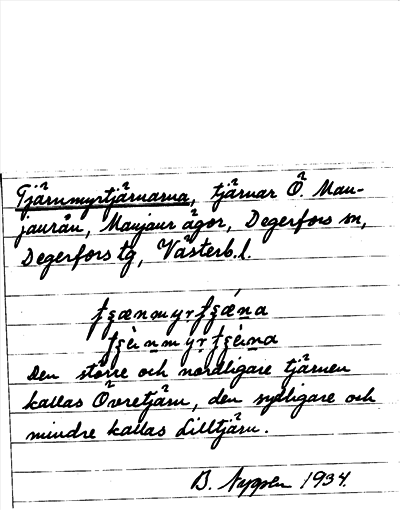 Tjärnmyrtjärnarna, tjärnar Ö. Man-
jaurån, Manjaur ägor, Degerfors sn,
Degerfors tg, Västerb. l.
Den större och nordligare tjärnen
kallas Övretjärn, den sydligare och
mindre kallas Lilltjärn.
B. 1934.